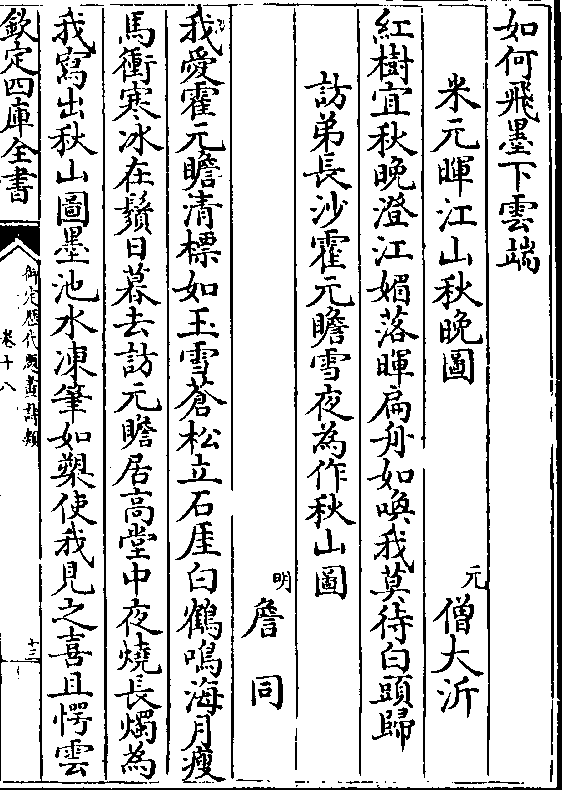 如何飛墨下雲端
米元暉江山秋晚圖
元 僧大䜣
紅樹宜秋晚澄江媚落暉扁舟如喚我莫待白頭歸
訪弟長沙霍元瞻雪夜為作秋山圖
明 詹同
我愛霍元瞻清標如玉雪蒼松立石厓白鶴鳴海月瘦
馬衝寒冰在鬚日暮去訪元瞻居高堂中夜燒長燭為
我寫出秋山圖墨池水凍筆如槊使我見之喜且愕雲
欽定四庫全書
御定歷代題畫詩類
卷十八
十三